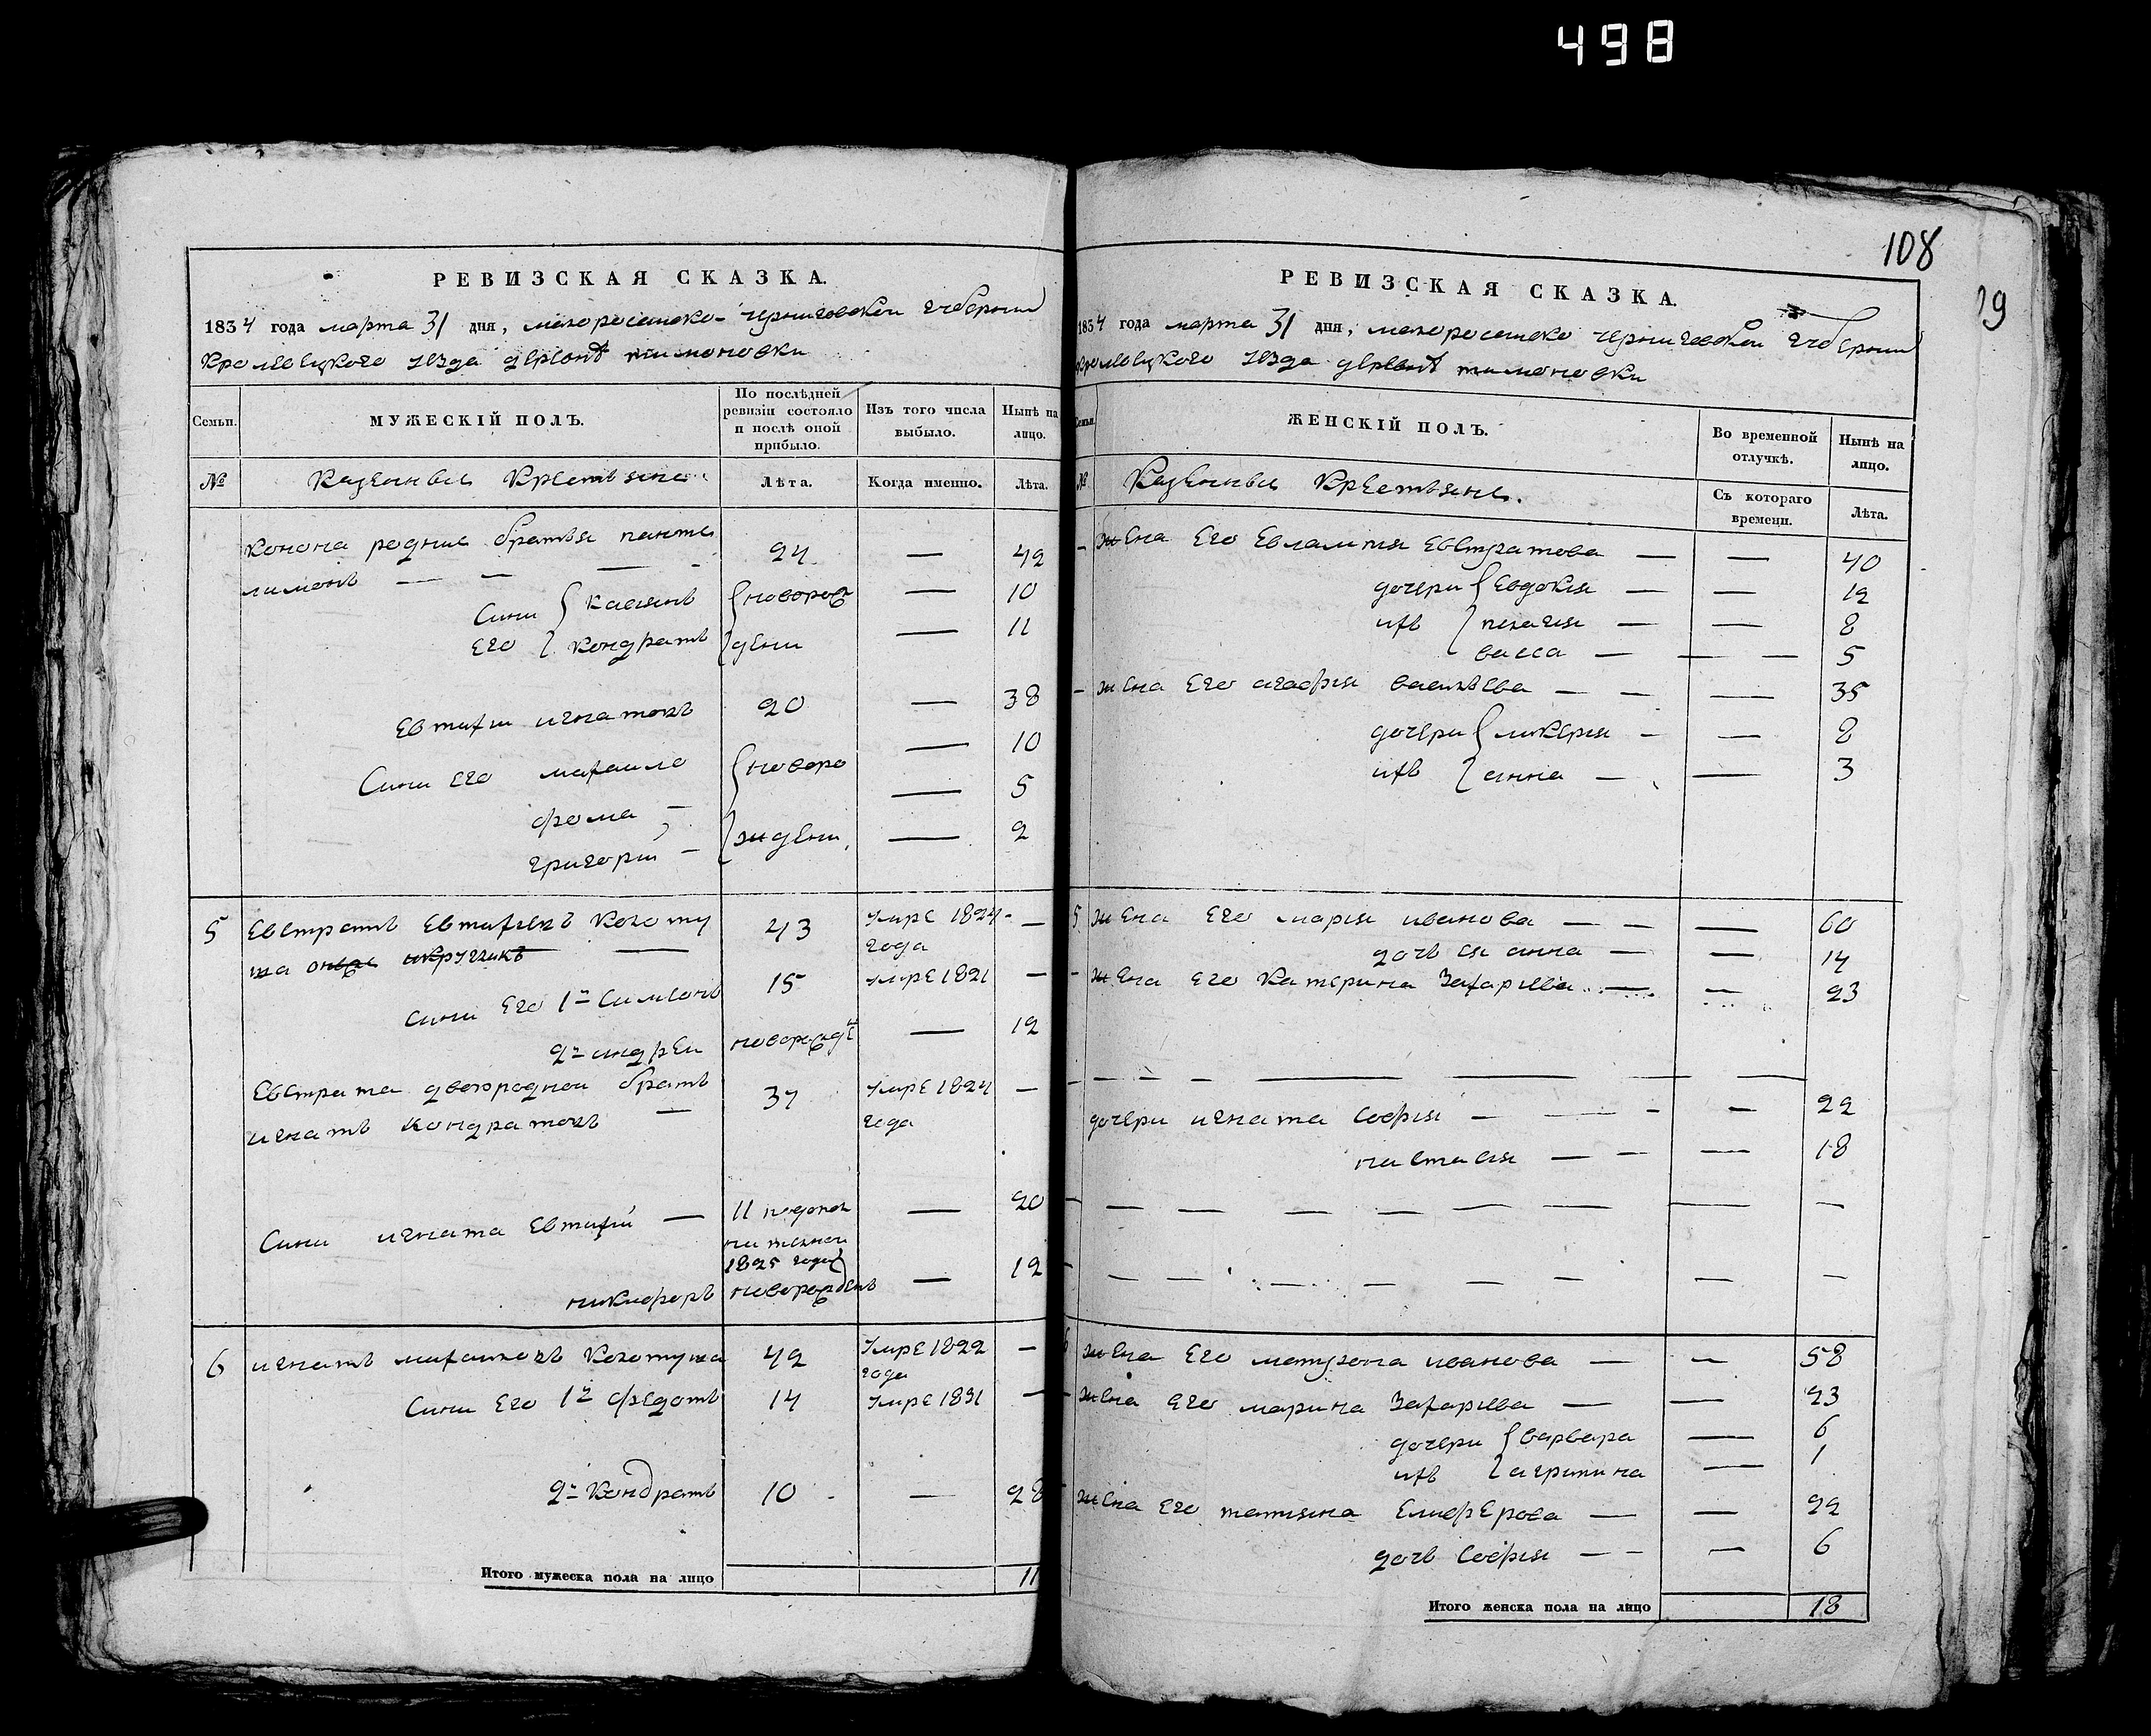 498
108
19
РЕВИЗСКАЯ СКАЗКА.
1834 года марта 31 дня, малоросейско-черниговской губернии
Кролевецкого уезда деревне тимоновки
Семьи.
МУЖЕСКІЙ ПОЛЪ.
По послѣдней ревизіи состояло и послѣ оной прибыло.
Изъ того числа выбыло.
Нынѣ на лицо.
№
Казенные Крестьяне
Лѣта.
Когда именно.
Лѣта.
Конона родние братья панте
лимонъ — — — 24 — 42
Сини { касиянъ { новорож — 10
его { Кондратъ { дени — 11
Евтифи игнатовъ 20 — 38
Сини его михаило { новоро — 10
фома — — 5
григорий — { ждени — 2
5 Евстратъ Евтифиевъ Колоту 43 умре 1824 —
ша года
сини его 1й Симионъ 15 умре 1821 —
2й андреи новорожде — 12
Евстрата двоюродной братъ 37 умре 1824 —
игнатъ Кондратовъ — года
Сини игната Евтифий — 11 — 20
1825 года
никифоръ новорожденъ — 12
6 игнатъ михаиловъ Колотуша 42 умре 1822 —
года
Сини его 1й федотъ 14 умре 1831 —
2й Кондратъ 10 — 28
Итого мужеска пола на лицо 11
РЕВИЗСКАЯ СКАЗКА.
1834 года марта 31 дня, малоросейско черниговской губернии
Кролевецкого уезда деревне тимоновки
Семьи.
ЖЕНСКІЙ ПОЛЪ.
Во временной отлучкѣ.
Нынѣ на лицо.
№
Казенные Крестьяне.
Съ котораго времени.
Лѣта.
— жена его Евлампия Евстратова — — 40
дочери { Евдокия — — 12
ихъ { пелагия — — 8
васса — — — 5
— жена его агафия васильева — — — 35
дочери { ликерия — — 8
ихъ { анна — — 3
5 жена его мария иванова — — — 60
дочь ея анна — — 14
— жена его Катерина Захариева — — 23
— — — — — — — —
дочери игната софия — — — — 22
настасия — — — 18
— — — — — — — — — —
— — — — — — — — —
6 жена его матрона иванова — — 58
— жена его марина Захариева — — 23
дочери { варвара — 6
ихъ { агрипина — 1
жена его татияна Елиферова — — 22
дочь софия — — — 6
Итого женска пола на лицо 18